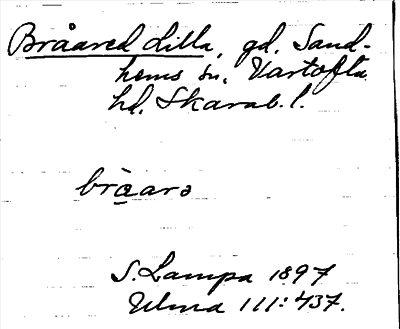 Bråared Lilla, gd. Sand-
hems sn, Vartofta
hd, Skarab. l.
bråara
S. Lampa 1897
Ulma 111:437.